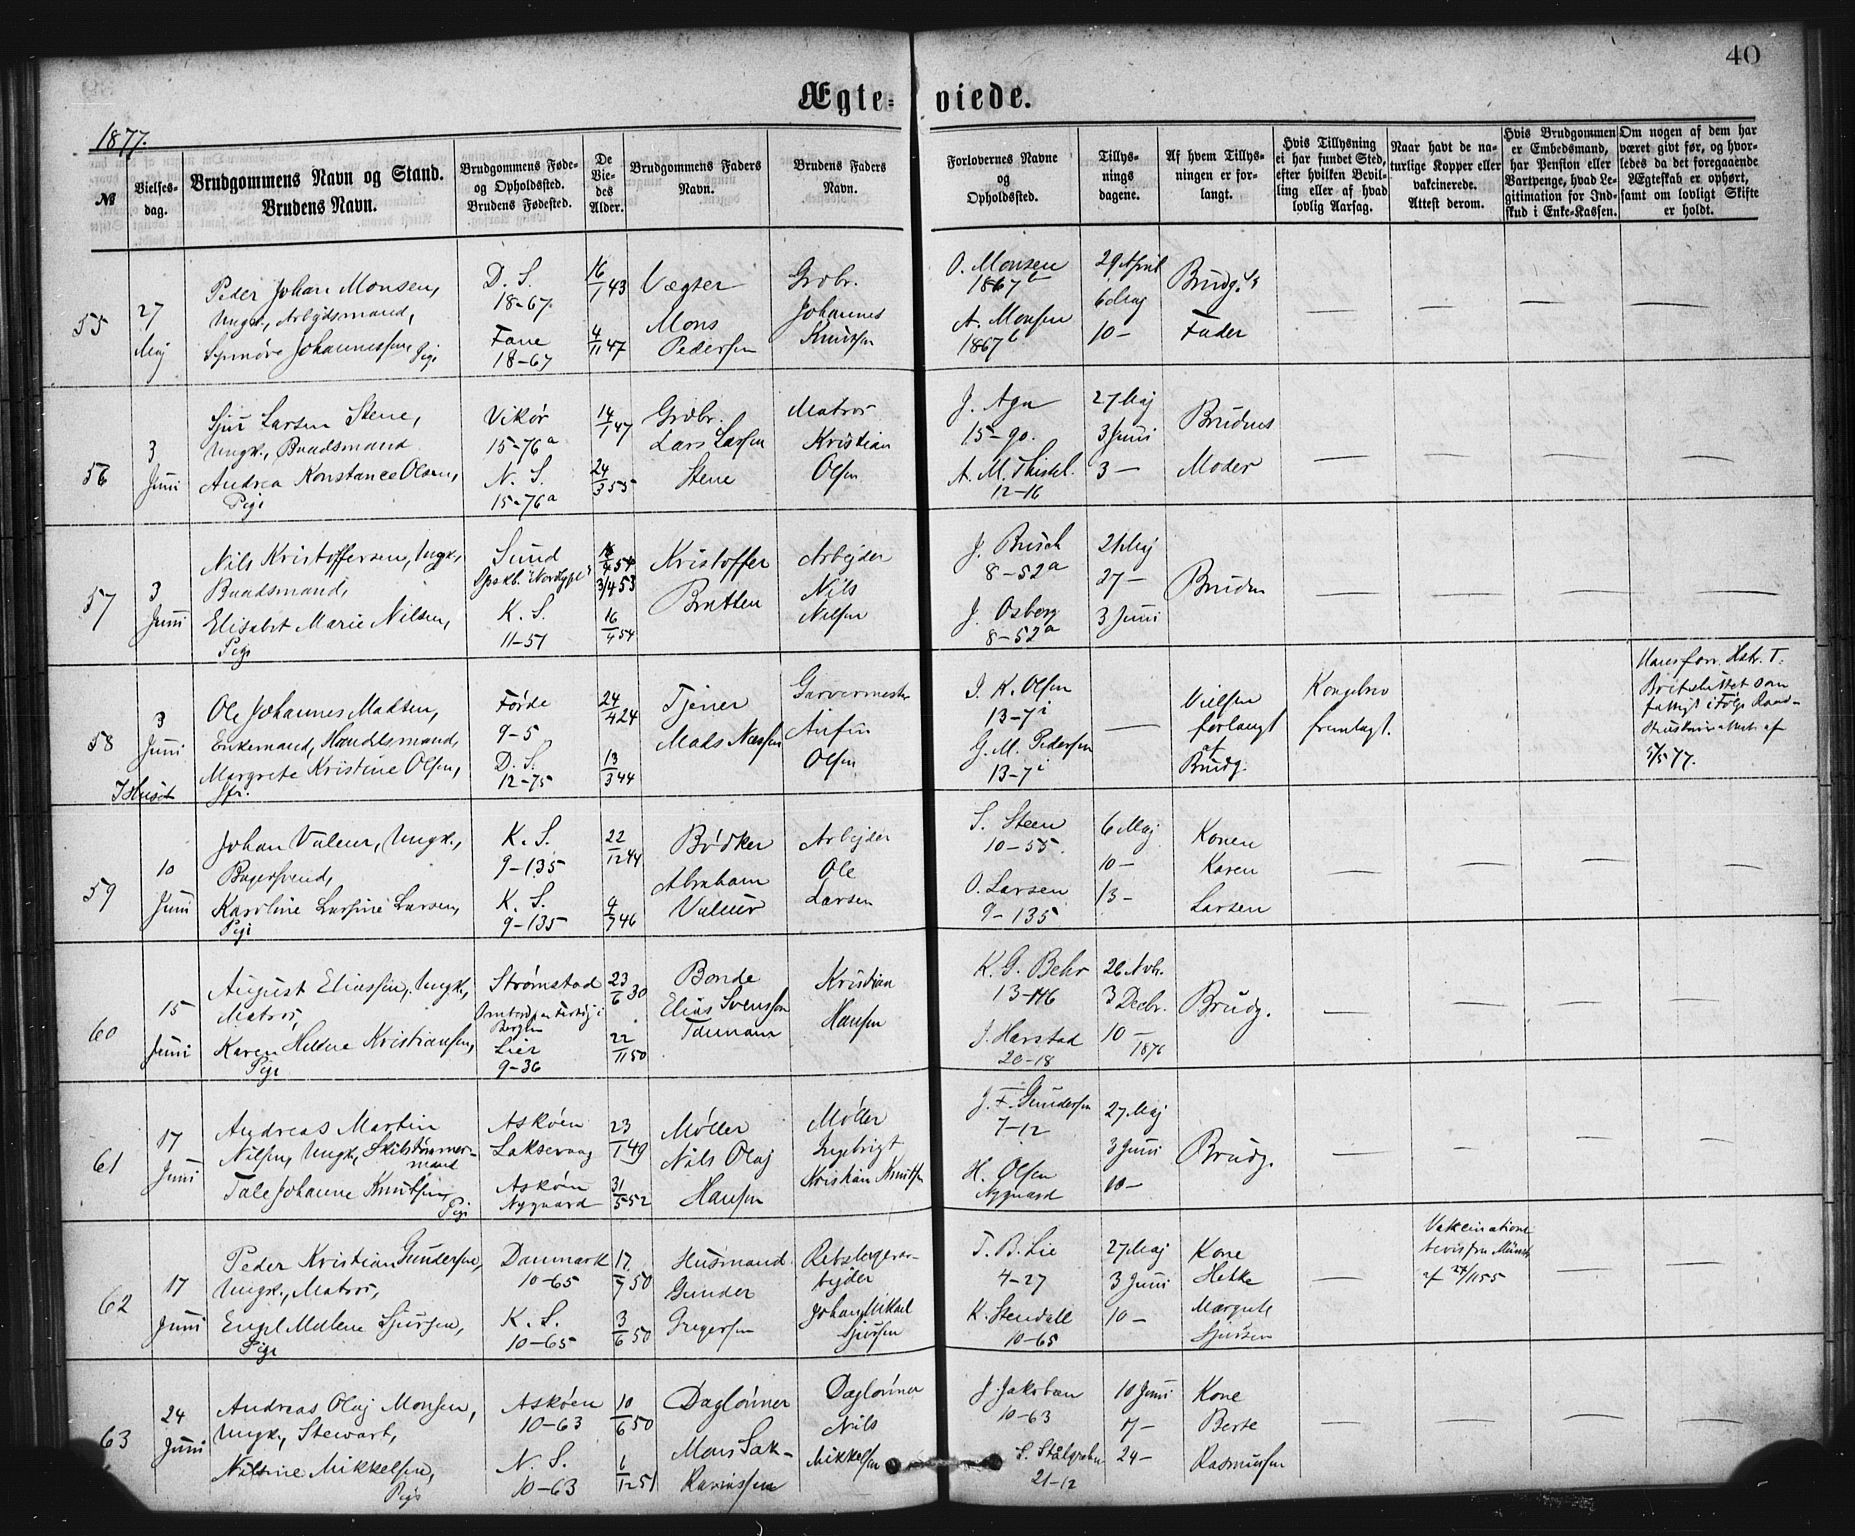 40
Ægte- viede.
1877.
№
Vielses-
dag.
Brudgommens Navn og Stand.
Brudens Navn.
Brudgommens Føde-
og Opholdsted.
Brudens Fødested.
De
Vie-
des
Alder.
Brudgommens Faders
Navn.
Brudens Faders
Navn.
Forlovernes Navne
og
Opholdsted.
Tillys-
nings
dagene.
Af hvem Tillys-
ningen er for-
langt.
Hvis Tillysning
ei har fundet Sted,
efter hvilken Bevil-
ling eller af hvad
lovlig Aarsag.
Naar havt de na-
turlige Kopper eller
vakcinerede.
Attest derom.
Hvis Brudgommen
er Embedsmand,
har Pension eller
Vartpenge, hvad Le-
gitimation for Ind-
skud i Enke-Kassen.
Om nogen af dem har
været givt før, og hvor-
ledes da det foregaaende
Ægteskab er ophørt,
samt om lovligt Skifte
er holdt.
55
27
Maj
Peder Johan Monsen,
Ungk., Arbejdsmand,
Synnøve Johannessen, Pige
D. S.
18-67.
Fane
18-67
16/1 43
4/11 47
Vægter
Mons
Pedersen
Grdbr.
Johannes
Knutsen
O. Monsen
1867 b
A. Monsen
1867 b
29 April
6 Maj
10 —
Brudg.s
Fader
56
3
Juni
Sjur Larsen Stene,
Ungk., Baadsmand
Andrea Konstance Olsen,
Pige
Vikør
15-76a
N. S.
15-76a
14/1 47
24/3 55
Grdbr.
Lars Larsen
Stene
Matros
Kristian
Olsen
J. Aga
15-90.
A. M. Thistel.
12-16
27 Maj
3 Juni
3 —
Brudens
Moder
57
3
Juni
Nils Kristoffersen, Ungk.,
Baadsmand,
Elisabet Marie Nilsen,
Pige
Sund
K. S.
11-51
3/4 53
16/4 54
Kristoffer
Bratten
Arbejder
Nils
Nilsen
J. Busch
8-52a
J. Osberg
8-52a
21 Maj
27 —
3 Juni
Bruden
58
3
Juni
I Huset
Ole Johannes Madsen,
Enkemand, Handelsmand,
Margrete Kristine Olsen,
Førde
9-5
D. S.
12-75
24/4 24
13/3 44
Tjener
Mads Nassen
Garvermester
Anfin
Olsen
J. K. Olsen
13-7i
G. M. Pedersen
13-7i
Vielsen
forlangt
af
Brudg.
Kongebrev
fremlagt.
59
10
Juni
Johan Valeur, Ungk.,
Bagersvend,
Karoline Larsine Larsen,
Pige
K. S.
9-135
K. S.
9-135
22/12 44
9/7 46
Bødker
Abraham
Valeur
Arbejder
Ole
Larsen
S. Steen
10-55.
O. Larsen
9-135
6 Maj
10 —
13 —
Konen
Karen
Larsen
60
15
Juni
August Eliassen, Ungk.,
Matros,
Karen Helene Kristiansen,
Pige
Strømstad
Ombord paa Fartøj i
Bergen
Lier
9-36
23/6 30
22/11 50
Bonde
Elias Svensson
Kristian
Hansen
K. G. Behr
13-146
J. Harstad
20-18
26 Novbr.
3 Decbr.
10 — 1876
Brudg.
61
17
Juni
Andreas Martin
Nilsen, Ungk., Skibstømmer-
mand
Tale Johanne Knutsen,
Pige
Askøen
Laksevaag
Askøen
Nygaard
23/1 49
31/5 52
Møller
Nils Olaj
Hansen
Møller
Ingebrigt
Kristian Knutsen
J. F. Gundersen
7-12
H. Olsen
Nygaard
27 Maj
3 Juni
10 —
Brudg.
62
17
Juni
Peder Kristian Gundersen,
Ungk., Matros,
Engel Malene Sjursen,
Pige
Danmark
10-65
K. S.
10-65
17/7 50
3/6 50
Husmand
Gunder
Gregersen
Rebslagerar-
bejder
Johan Mikael
Sjursen
T. B. Lie
4-27
K. Stendall
10-65
27 Maj
3 Juni
10 —
Kone
Margrete
Sjursen
Vakcinations-
bevis fra Münster
af 24/11 55
63
24
Juni
Andreas Olaj Monsen,
Ungk., Stewart,
Nilsine Mikkelsen,
Pige
Askøen
10-63
N. S.
10-63
10/6 50
6/12 51
Daglønner
Mons Sak-
kariassen
Daglønner
Nils
Mikkelsen
J. Jakobsen
10-63
21-12
10 Juni
17 —
24 —
Kone
Berte
Rasmussen